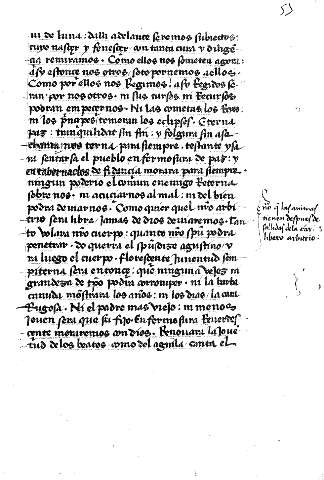 53
ni de luna: dalli adelante seremos subiectos:
cuyo nasçer y feneçer con tanta cura y diligen
çia remiramos. Como ellos nos someten agora:
asy estonçe nos otros soto pornemos a ellos.
Como por ellos nos Regimos: asy Regidos se
ran por nos otros. ni sus cursos ni Recursos
podran empeçernos. Ni las cometas los Reyes
ni los prínçipes temeran los eclipses. Eterna
paz: tranquilidat sin fin: y folgura sin ase
nos terna para siempre. testante ysa
ya sentarsa el pueblo en fermosura de paz: y
en tabernacles de fiduçia morara para siempre.
ningun poderio el comun enemigo Reterna
sobre nos. ni acuciarnos al mal. ni del bien
podra deuiarnos. Como quier quel nuestro arbi
trio sera libre. Jamas de dios deuiaremos. Tan
to volara nuestro cuerpo: quanto nuestro spiritu podra
penetrar. do querra el spiritu dize agustino. y
ra luego el cuerpo. floresçente Juuentud sem
piterna sera entonçe: que ninguna vejes ni
grandeza de tiempo podra corromper. ni la barba
canuda mostrara los años: ni los dias la cara
Rugosa. Ni el padre mas viejo: ni menos
Jouen sera que su fijo. En fermosura Reuerdes
çente moraremos con dios. Renouara la Joue
tud de los beatos como del aguila canta el
no que las animas
tienen despues de
salidas del cuerpo
libero arbitrio.